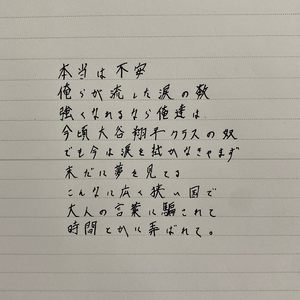 本当は不安
俺らが流した涙の数
強くなれるなら俺達は
今頃大谷翔平クラスの奴
でも今は涙を拭かなきゃまず
未だに夢を見てる
こんなに広く狭い国で
大人の言葉に騙されて
時間とかに弄ばれて。